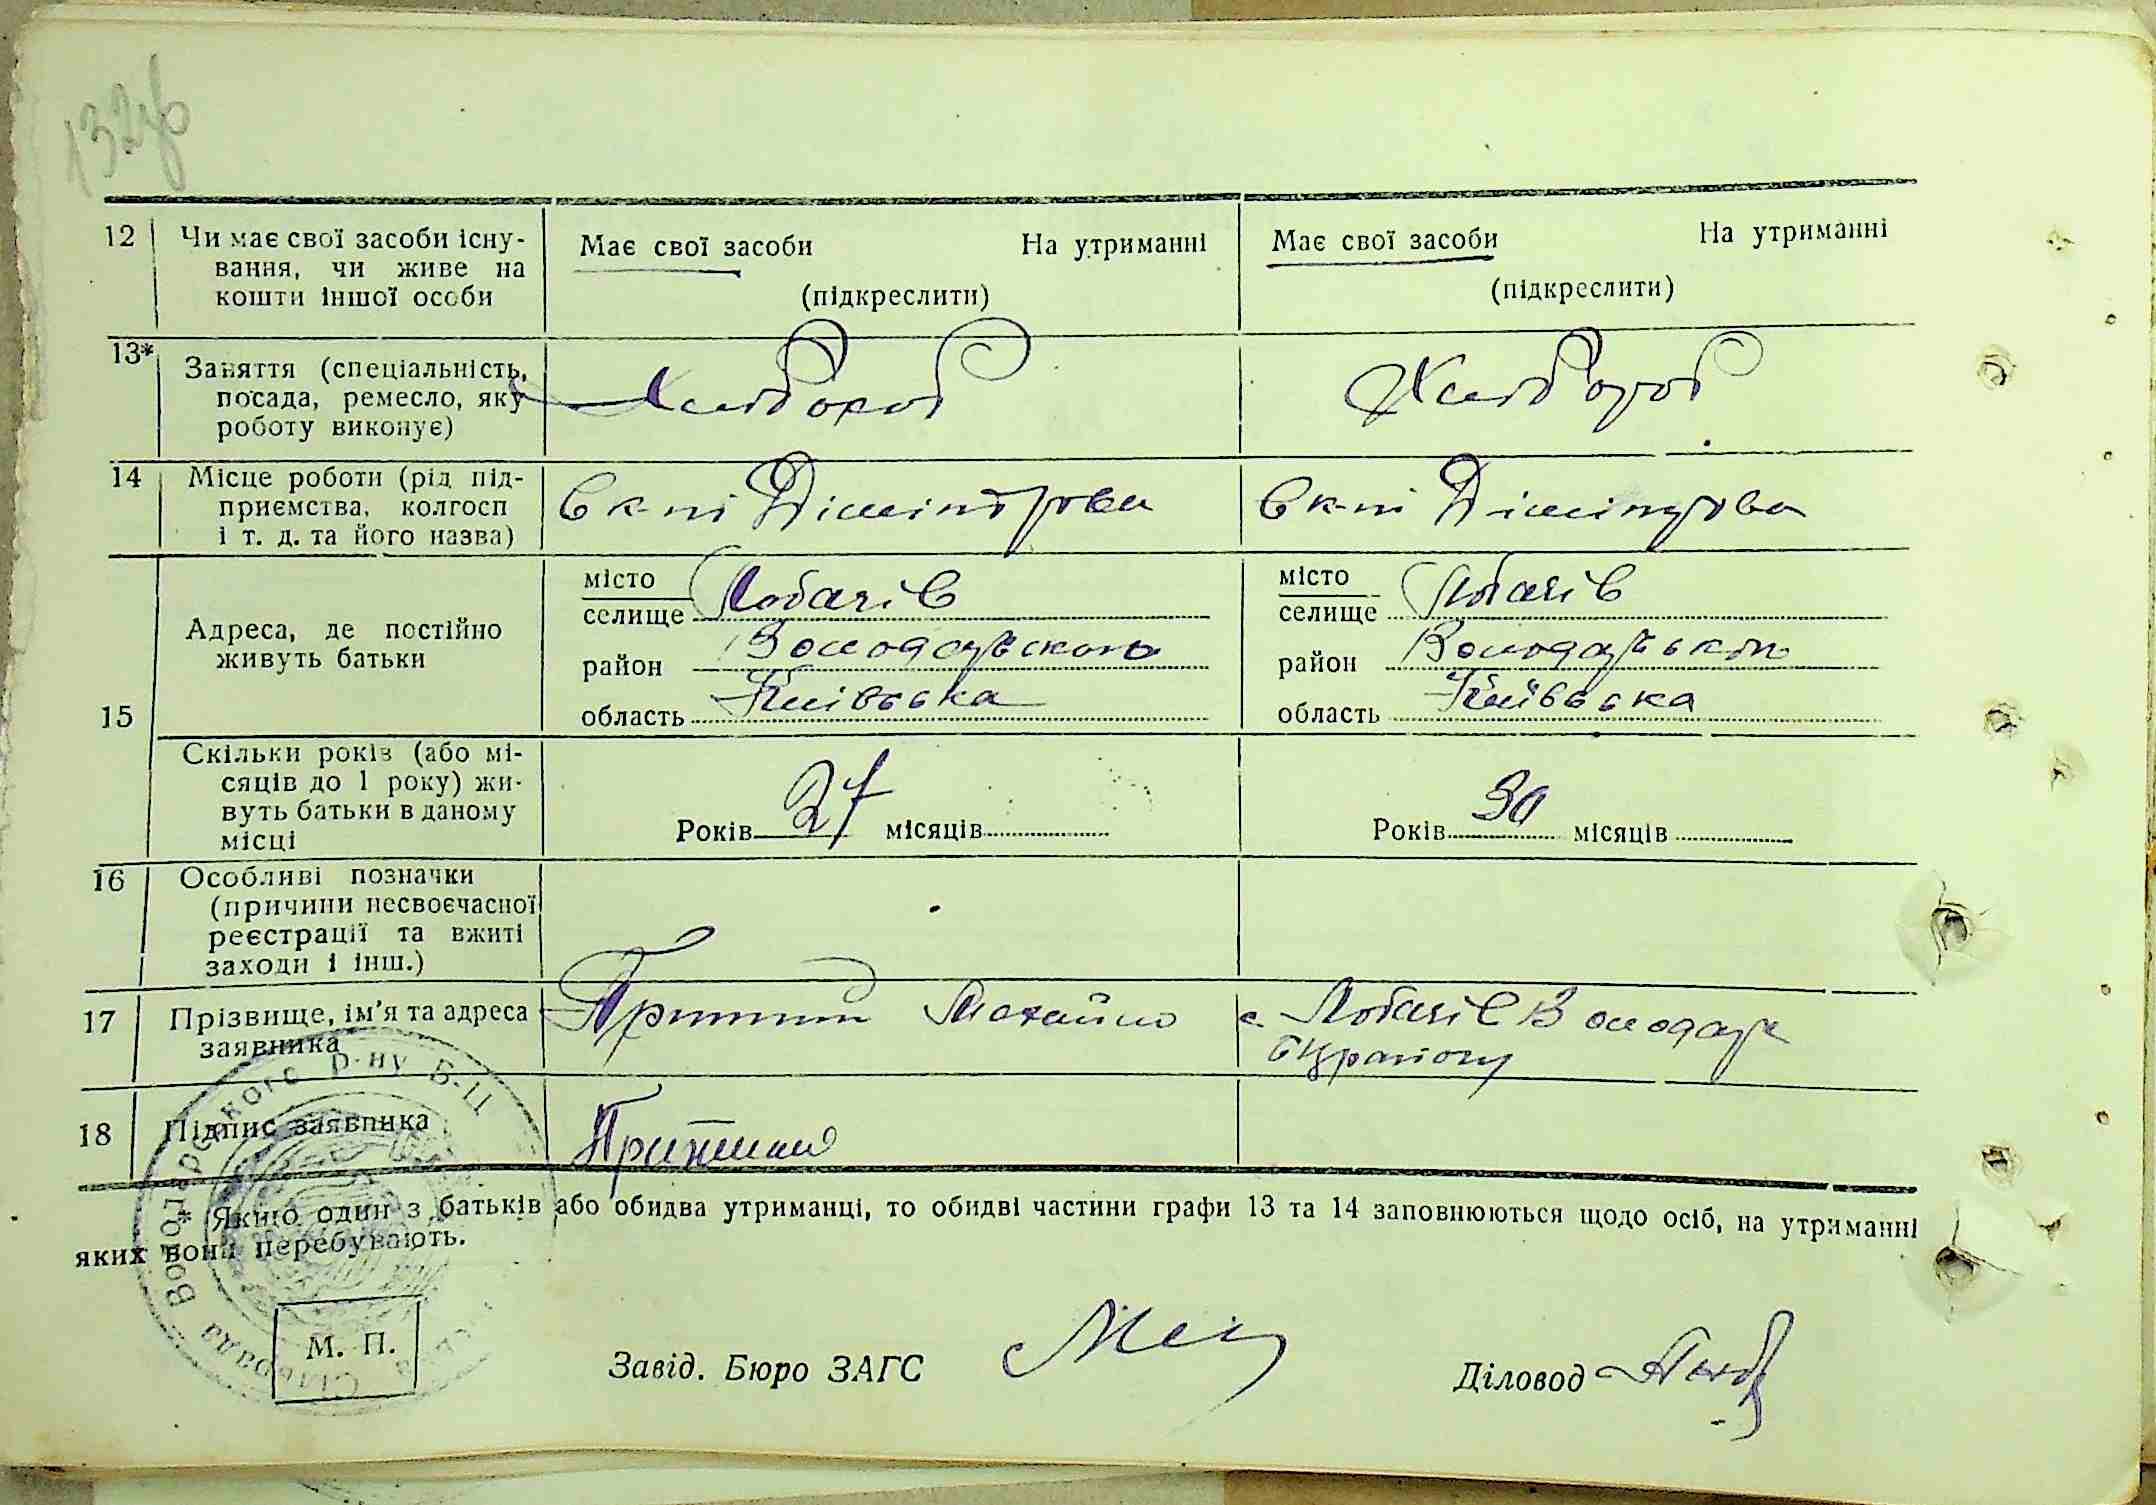 132зв
12 Чи має свої засоби існу-
вання, чи живе на
кошти іншої особи
Має свої засоби На утриманні
(підкреслити)
Має свої засоби На утриманні
(підкреслити)
13* Заняття (спеціальність,
посада, ремесло, яку
роботу виконує)
Хлібороб
Хлібороб
14 Місце роботи (рід під-
приємства, колгосп
і т. д. та його назва)
в к-пі Дімітрова
в к-пі Дімітрова
15 Адреса, де постійно
живуть батьки
місто
селище Лобачів
район Володарського
область Київська
місто
селище Лобачів
район Володарськ
область Київська
Скільки років (або мі-
сяців до 1 року) жи-
вуть батьки в даному
місці
Років 27 місяців
Років 30 місяців
16 Особливі позначки
(причини несвоєчасної
реєстрації та вжиті
заходи і інш.)
17 Прізвище, ім'я та адреса
заявника
Михайло
с. Лобачів Володар
ськ району
18 Підпис заявника
* Якщо один з батьків або обидва утриманці, то обидві частини графи 13 та 14 заповнюються щодо осіб, на утриманні
яких вони перебувають.
Володарського р-ну Б-Ц
Сільрада
М. П.
Завід. Бюро ЗАГС
Діловод